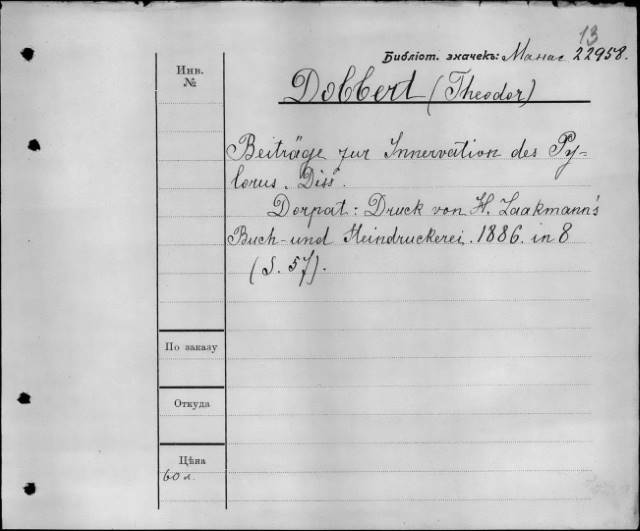 13
Библіот. значекъ: Манас 22958.
Инв.
№
Dobbert (Theodor)
Beiträge zur Innervation des Py-
lorus. Diss.
Dorpat: Druck von H. Laakmann's
Buch- und Steindruckerei. 1886. in 8
(S. 57).
По заказу
Откуда
Цѣна
60 к.